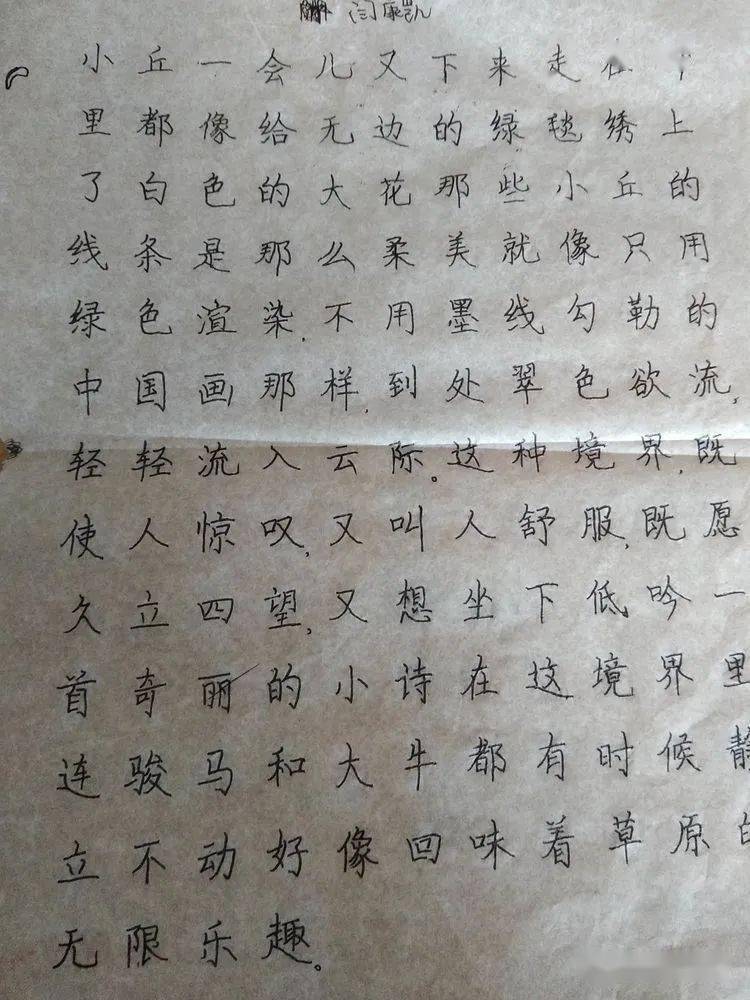 闫康凯
小丘一会儿又下来走在
里都像给无边的绿毯绣上
了白色的大花那些小丘的
线条是那么柔美就像只用
绿色渲染,不用墨线勾勒的
中国画那样,到处翠色欲流,
轻轻流入云际。这种境界,既
使人惊叹,又叫人舒服,既愿
久立四望,又想坐下低吟一
首奇丽的小诗在这境界里
连骏马和大牛都有时候静
立不动好像回味着草原的
无限乐趣。